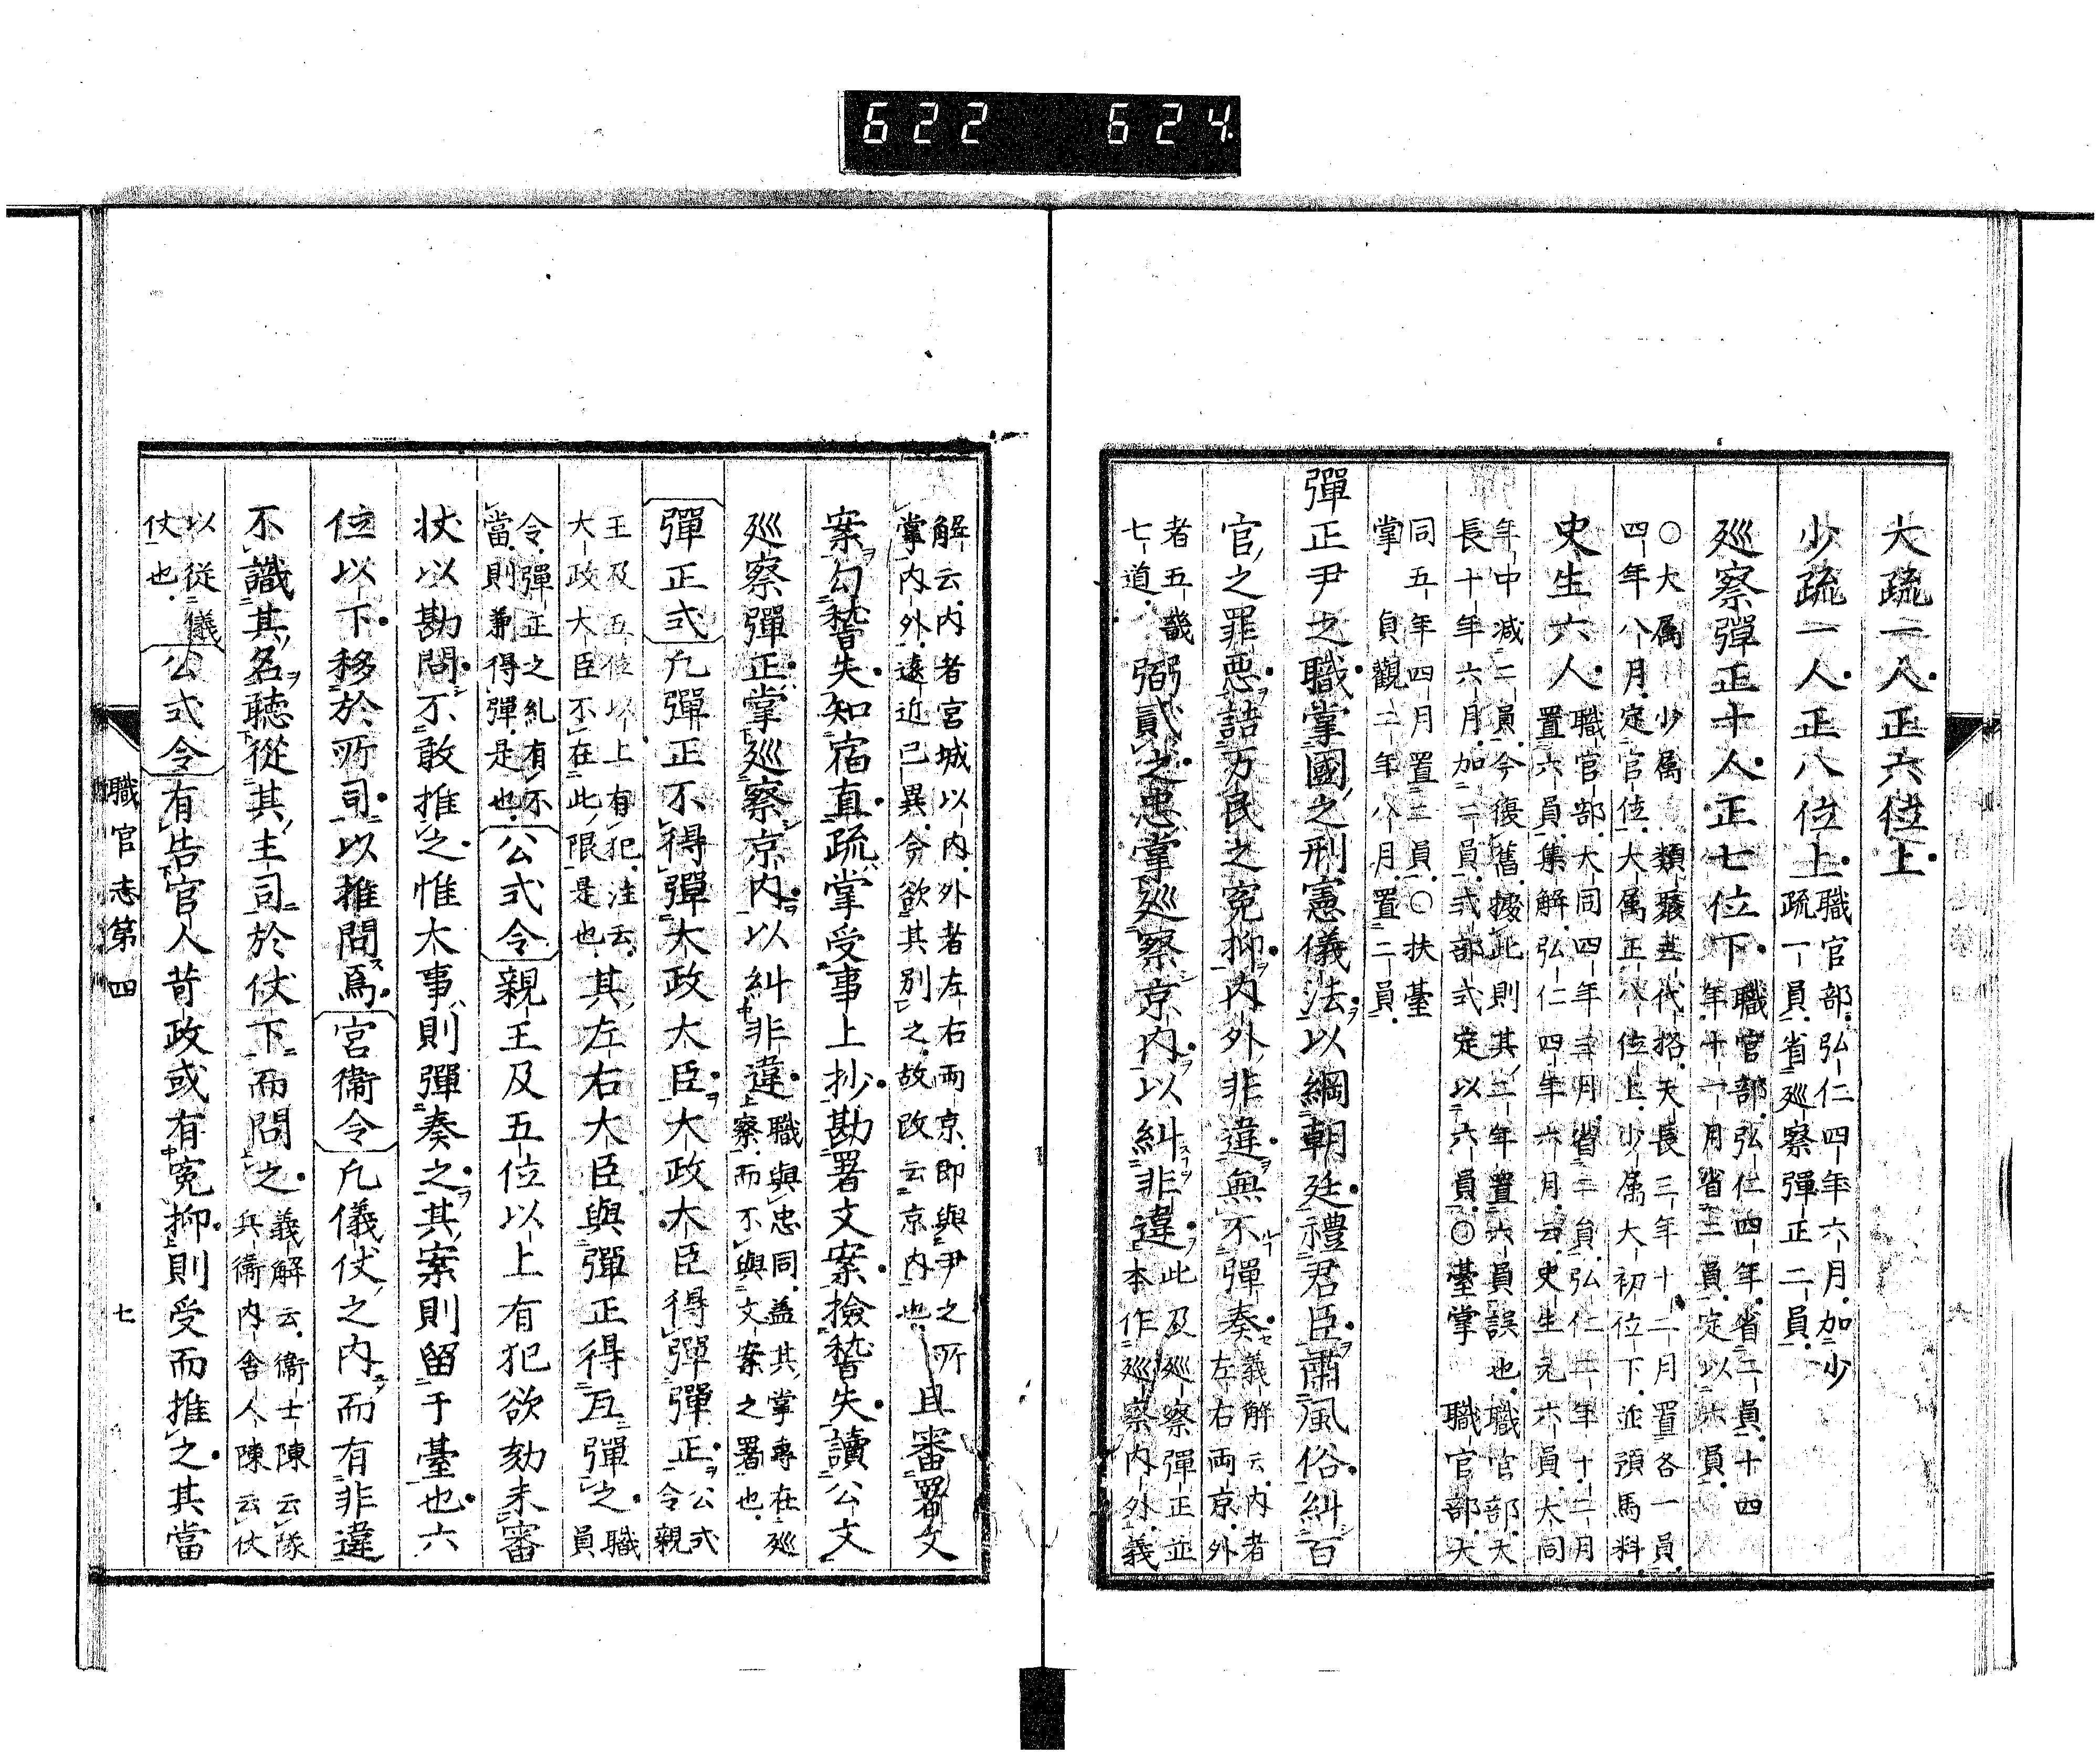 622 624
大疏一人正六位上
少疏一人正八位上
職官部弘仁四年六月加少
疏一員省巡察彈正二員
巡察彈正十人正七位下
職官部弘仁四年省二員十四
年十一月省二員定以六員
〇大属 少属 類聚三代格天長三年十二月置各一員
四年八月定官位大属正八位上少属大初位下並預馬料
史生六人
職官部大同四年三月省二員弘仁二年十二月
置六員集解弘仁四年六月云史生元六員大同
年中減二員今復舊據此則其三年置六員誤也職官部天
長十年六月加二員式部式定以六員〇臺掌 職官部大
同五年四月置二員〇扶臺
掌 貞觀二年八月置二員
彈正尹之職掌國之刑憲儀法以綱朝廷禮君臣肅風俗糾百
官之罪惡詰万民之寃抑内外非違無不彈奏
義解云内者
左右兩京外
者五畿
七道
弼貳之忠掌巡察京内以糾非違
此及巡察彈正並
本作巡察内外義
解云内者宮城以内外者左右兩京即與尹之所
掌内外遠近已異今欲其別之故改云京内也
且審署文
案勾稽失知宿直疏掌受事上抄勘署文案撿稽失讀公文
巡察彈正掌巡察京内以糾非違
職與忠同益其掌專在巡
察而不與文案之署也
彈正式凡彈正不得彈太政大臣太政大臣得彈彈正
公式
令親
王及五位以上有犯注云
大政大臣不在此限是也
其左右大臣與彈正得互彈之
職
員
令彈正之糺有不
當則兼得彈是也
公式令親王及五位以上有犯欲劾未審
狀以勘問不敢推之惟大事則彈奏之其案則留于臺也六
位以下移於所司以推問焉宮衞令凡儀仗之内而有非違
不識其名聽從其主司於仗下而問之
義解云衞士陳云隊
兵衞内舍人陳云仗
以從儀
仗也
公式令有告官人苛政或有寃抑則受而推之其當
職官志第四
七